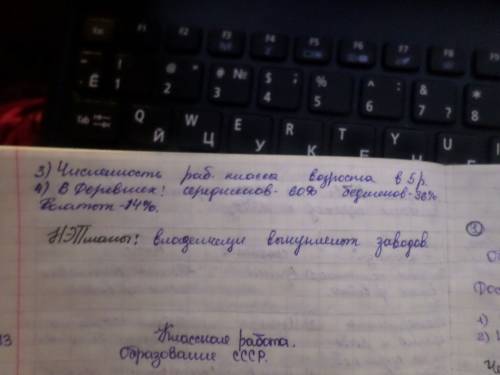 Esc F1 F2 F3 F4 F5 F6 F7 F8
Ё ! 1 @ " 2 # № 3 $ ; 4 % 5 ^ : 6 & ? 7 * 8
Tab Q Й W Ц E У R К T Е Y Н U
3) Численность раб. класса возросла в 5 р.
4) В деревнях: середняков - 60% бедняков -
- 14%.
НЭПманы: владельцы заводов.
Классная работа.
Образование СССР.
13
1
1)
2)